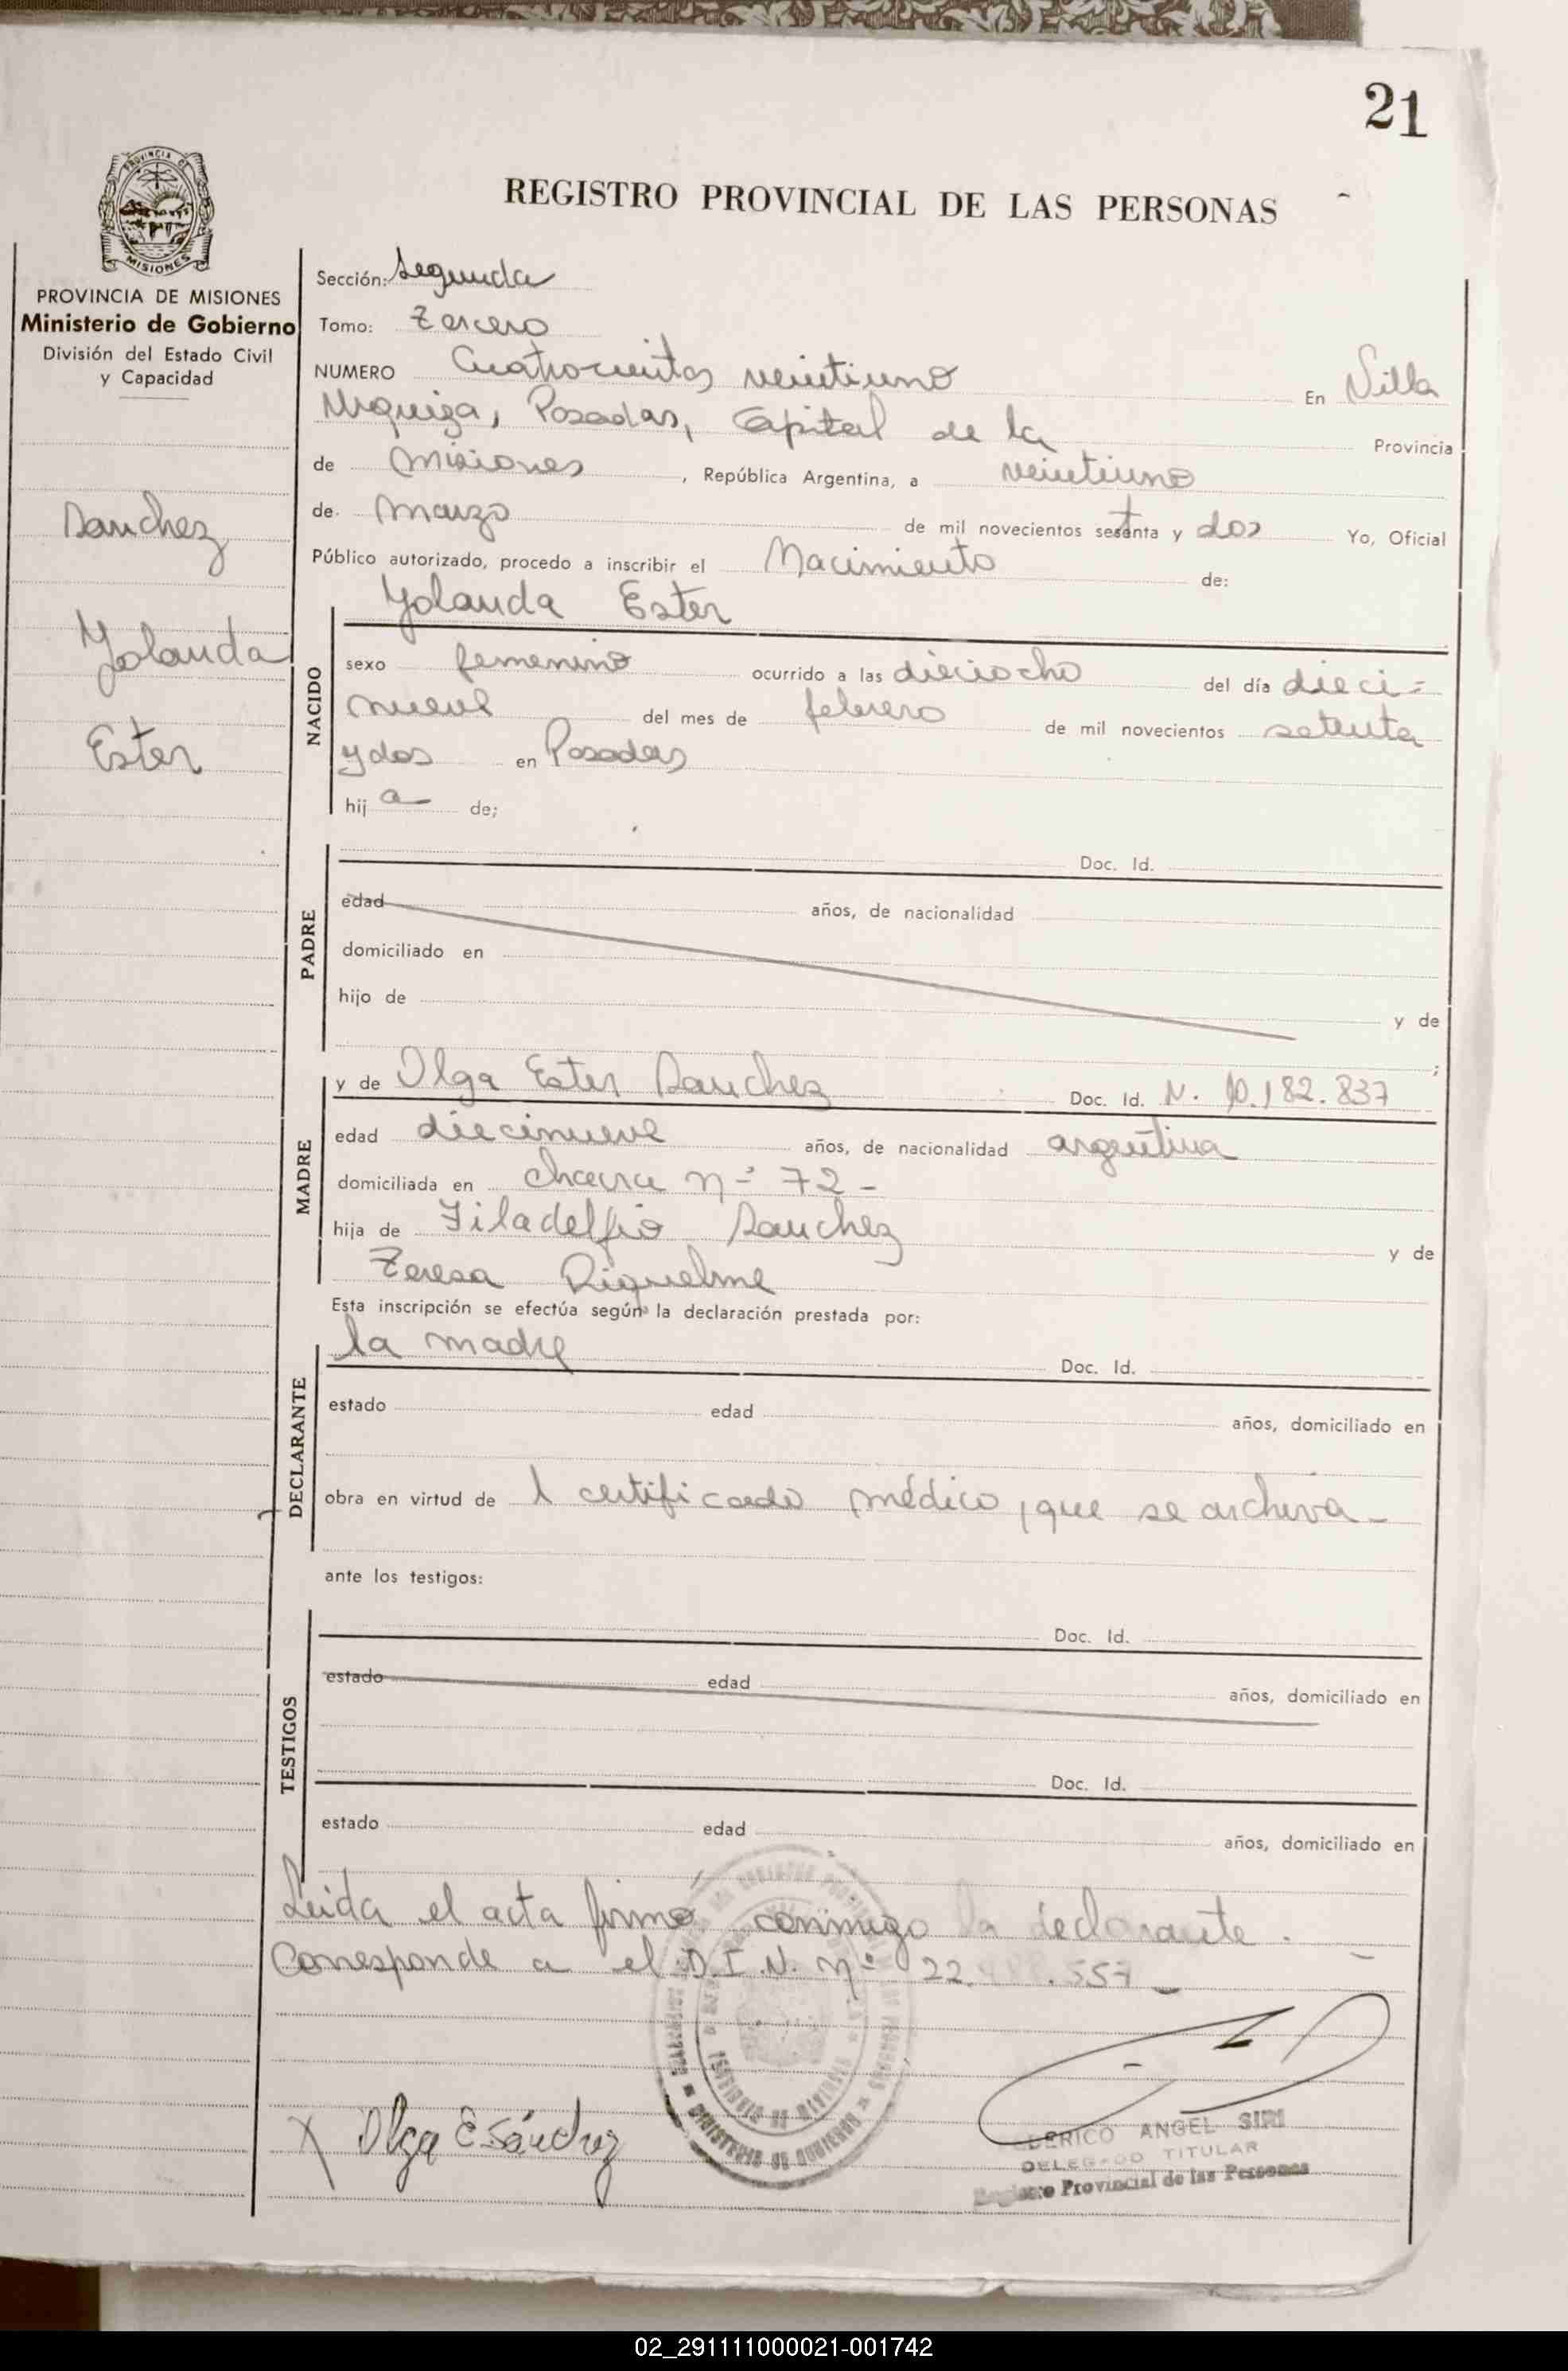 21
PROVINCIA DE
MISIONES
PROVINCIA DE MISIONES
Ministerio de Gobierno
División del Estado Civil
y Capacidad
Sanchez
Yolanda
Ester
REGISTRO PROVINCIAL DE LAS PERSONAS
Sección: Segunda
Tomo: Tercero
NUMERO Cuatrocientos veintiuno En Villa
Urquiza, Posadas, Capital de la Provincia
de Misiones, República Argentina, a veintiuno
de marzo de mil novecientos setenta y dos Yo, Oficial
Público autorizado, procedo a inscribir el Nacimiento de:
Yolanda Ester
NACIDO
sexo femenino ocurrido a las dieciocho del día dieci-
nueve del mes de febrero de mil novecientos setenta
y dos en Posadas
hij a de;
PADRE
Doc. Id.
edad años, de nacionalidad
domiciliado en
hijo de y de
;
MADRE
y de Olga Ester Sanchez Doc. Id. N. 10.182.837
edad diecinueve años, de nacionalidad argentina
domiciliada en chacra nº 72 -
hija de Filadelfio Sanchez y de
Teresa Riquelme
Esta inscripción se efectúa según la declaración prestada por:
DECLARANTE
la madre Doc. Id.
estado edad años, domiciliado en
obra en virtud de l certificado médico, que se archiva -
ante los testigos:
TESTIGOS
Doc. Id.
estado edad años, domiciliado en
Doc. Id.
estado edad años, domiciliado en
Leida el acta firmó conmigo la declarante. -
Corresponde a el D.I.N. nº 22. .557 -
MINISTERIO DE GOBIERNO
X Olga E Sánchez
ANGEL SIRI
DELEGADO TITULAR
Registro Provincial de las Personas
02_291111000021-001742